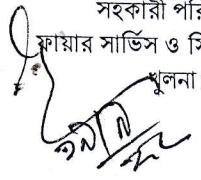 সহকারী পরি
ফায়ার সার্ভিস ও সি
খুলনা